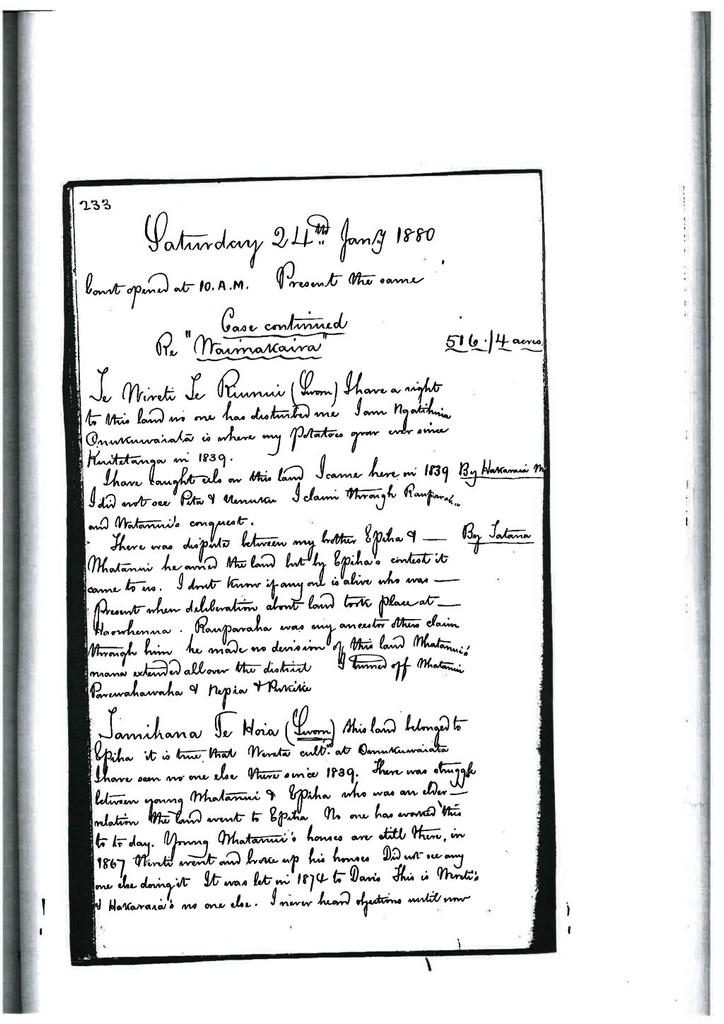 233
Saturday 24th Jany 1880
Court opened at 10. A.M. Present the same
Case continued
Re "Waimakaira" 516./4 acres
Te Wireti Te (Sworn) I have a right
to this land no one has disturbed me I am Ngatihuia
Omukuwaiata is where my Potatoes grow ever since
Kuititanga in 1839.
I have caught eels on this land I came here in 1839 By Hakaraia
I did not see Pita & Nenuku I claim through Rauparaha
and Watanui's conquest.
There was dispute between my brother Epiha & — By Tatana
Whatanui he owned the land but by Epiha's contest it
came to us. I dont know if any one is alive who was —
Present when deliberation about land took place at —
Haowhenua. Rauparaha was my ancestor others claim
through him he made no division of this land Whatanui's
mana extended all over the district I turned off Whatanui
Parewahawaha & Nepia &
Tamihana Te Hoia (Sworn) this land belonged to
Epiha it is true that Wireti cult. at Omukuwaiata
I have seen no one else there since 1839. There was struggle
between young Whatanui & Epiha who was an elder —
relation the land went to Epiha No one has worked this
to to day. Young Whatanui's houses are still there, in
1867 Wireti went and broke up his houses Did not see any
one else doing it It was let in 1874 to Davis This is Wireti's
& Hakaraia's no one else. I never heard objections until now